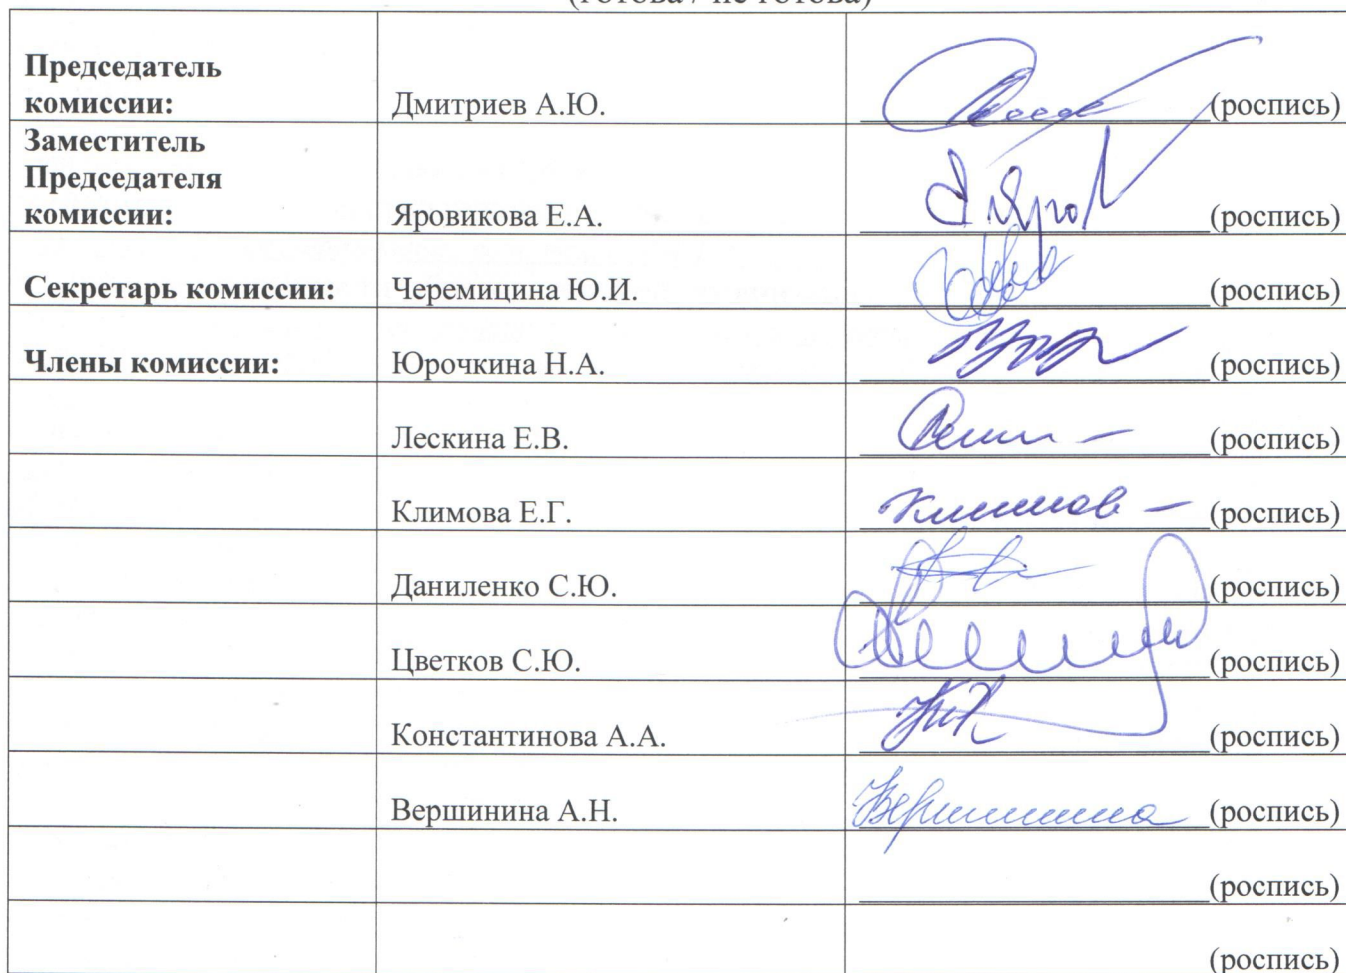 (готова / не готова)
Председатель
комиссии: Дмитриев А.Ю. (роспись)
Заместитель
Председателя
комиссии: Яровикова Е.А. (роспись)
Секретарь комиссии: Черемицина Ю.И. (роспись)
Члены комиссии: Юрочкина Н.А. (роспись)
Лескина Е.В. (роспись)
Климова Е.Г. (роспись)
Даниленко С.Ю. (роспись)
Цветков С.Ю. (роспись)
Константинова А.А. (роспись)
Вершинина А.Н. Вершинина (роспись)
(роспись)
(роспись)